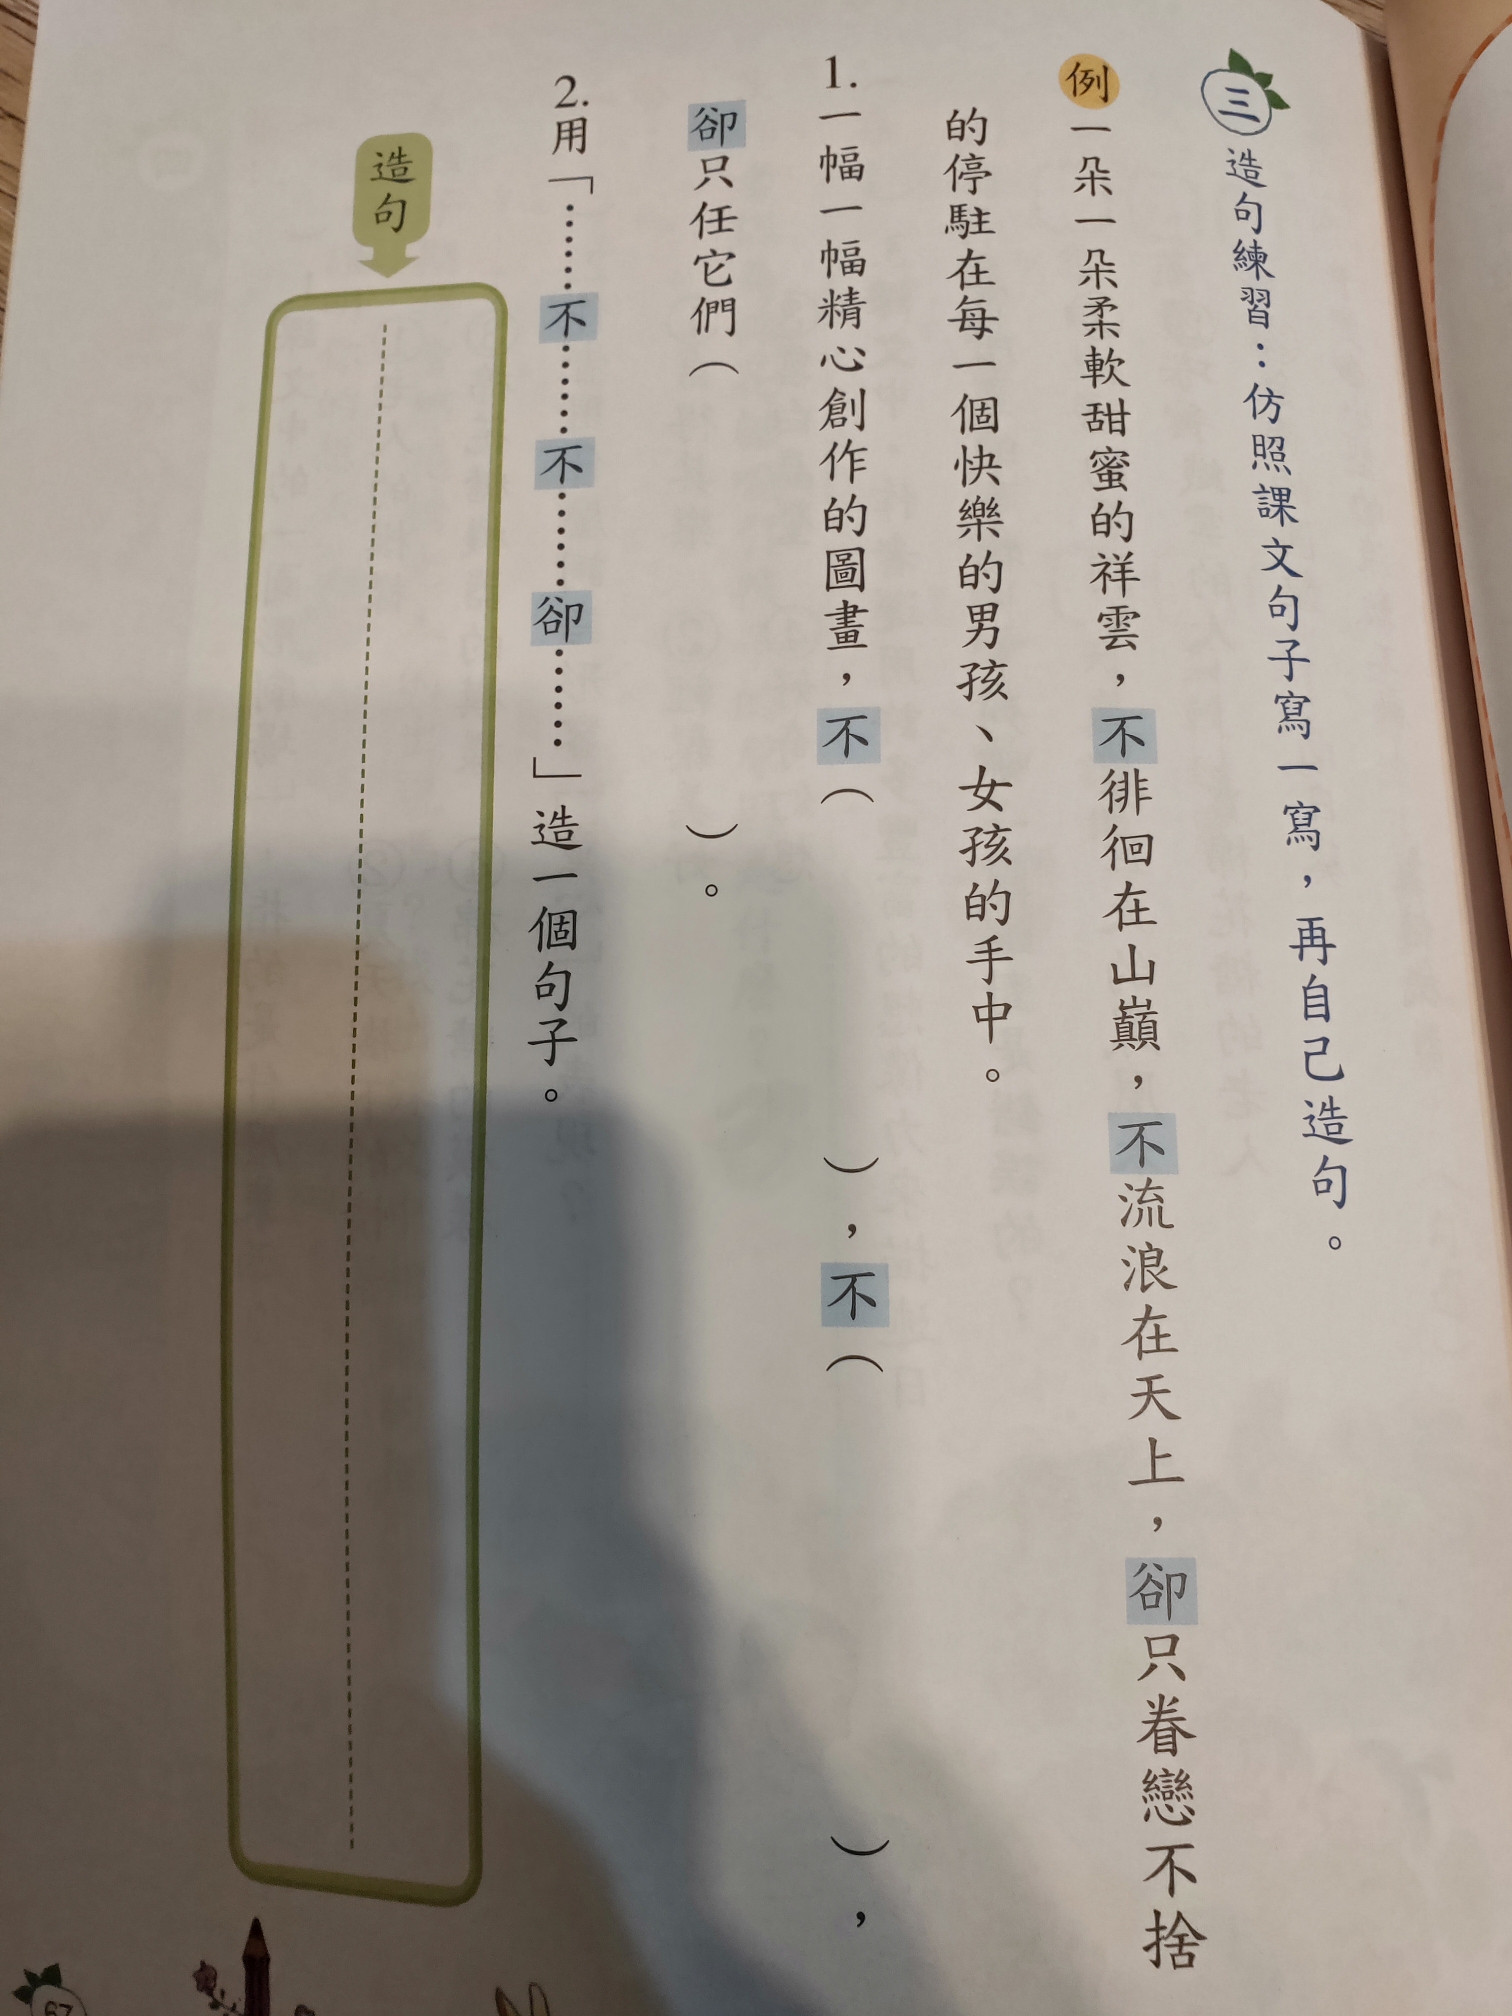 三 造句練習：仿照課文句子寫一寫，再自己造句。
例 一朵一朵柔軟甜蜜的祥雲，不徘徊在山巔，不流浪在天上，卻只眷戀不捨
的停駐在每一個快樂的男孩、女孩的手中。
1. 一幅一幅精心創作的圖畫，不（　），不（　），
卻只任它們（　）。
2. 用「……不……不……卻……」造一個句子。
造句
67